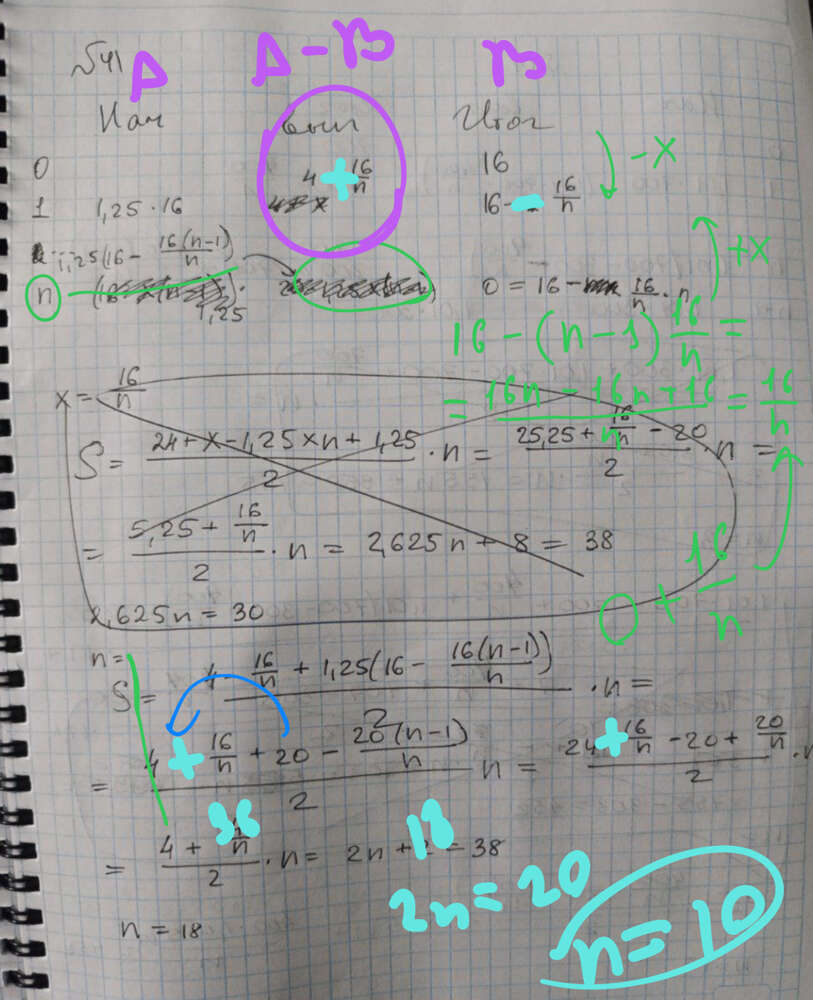 №41 A A-B B
Нач Вып Итог
0 4 + 16/n 16 -x
1 1,25·16 16 - 16/n
1,25(16 - 16(n-1)/n) +x
n 1,25 0 = 16 - 16/n · n
16 - (n-1) 16/n =
x = 16/n = (16n - 16n + 16)/n = 16/n
S = (24 + x - 1,25xn + 1,25)/2 · n = (25,25 + 16/n - 20)/2 · n =
= (5,25 + 16/n)/2 · n = 2,625n + 8 = 38
0 + 16/n
2,625n = 30
n =
S = (4 16/n + 1,25(16 - 16(n-1)/n))/2 · n =
= (4 + 16/n + 20 - 20(n-1)/n)/2 n = (24 + 16/n - 20 + 20/n)/2 · n
= (4 + 36/n)/2 · n = 2n + 18 = 38
2n = 20
n = 18 n = 10